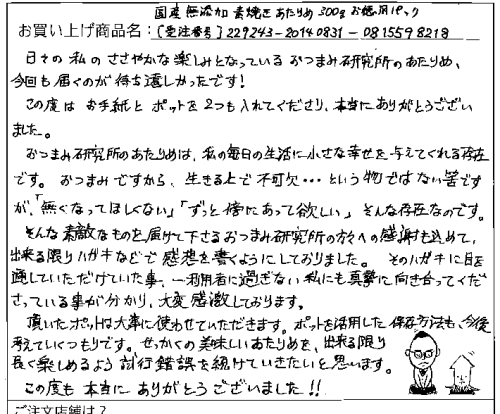 国産 無添加 素焼き あたりめ 300g お徳用パック
お買い上げ商品名：[受注番号] 229243-20140831-0815598218
日々の私のささやかな楽しみとなっているおつまみ研究所のあたりめ、
今回も届くのが待ち遠しかったです!
この度はお手紙とポットを2つも入れてくださり、本当にありがとうござい
ました。
おつまみ研究所のあたりめは、私の毎日の生活に小さな幸せを与えてくれる存在
です。おつまみですから、生きる上で不可欠…という物ではない筈です
が、「無くなってほしくない」「ずっと傍にあって欲しい」そんな存在なのです。
そんな素敵なものを届けて下さるおつまみ研究所の方々への感謝も込めて、
出来る限りハガキなどで感想を書くようにしておりました。そのハガキに目を
通していただけていた事、一利用者に過ぎない私にも真摯に向き合ってくだ
さっている事が分かり、大変感激しております。
頂いたポットは大事に使わせていただきます。ポットを活用した保存方法も、今後
考えていくつもりです。せっかくの美味しいあたりめを、出来る限り
長く楽しめるよう試行錯誤を続けていきたいと思います。
この度も本当にありがとうございました!!
ご注文店舗は？